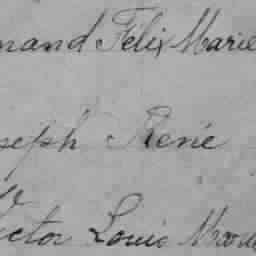 mand Félix Marie
seph René
ictor Louis